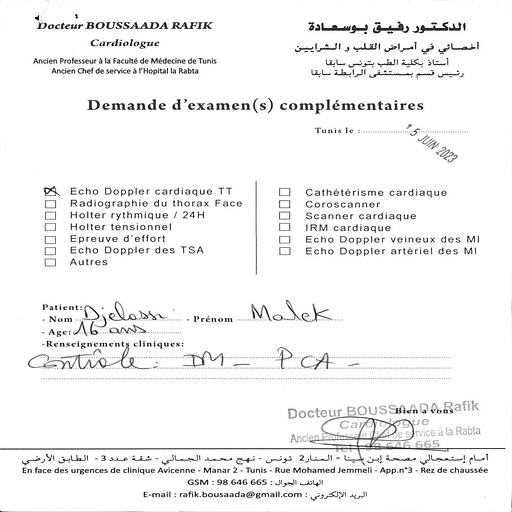 Docteur BOUSSAADA RAFIK
Cardiologue
Ancien Professeur à la Faculté de Médecine de Tunis
Ancien Chef de service à l'Hopital la Rabta
الدكتور رفيق بوسعادة
أخصائي في أمراض القلب و الشرايين
أستاذ بكلية الطب بتونس سابقا
رئيس قسم بمستشفى الرابطة سابقا
Demande d'examen(s) complémentaires
Tunis le :
15 JUIN 2023
Echo Doppler cardiaque TT
Radiographie du thorax Face
Holter rythmique / 24H
Holter tensionnel
Epreuve d'effort
Echo Doppler des TSA
Autres
Cathétérisme cardiaque
Coroscanner
Scanner cardiaque
IRM cardiaque
Echo Doppler veineux des MI
Echo Doppler artériel des MI
Patient:
- Nom Djelassi - Prénom Malek
- Age: 16 ans
-Renseignements cliniques:
Contrôle : DM - PCA -
Bien à vous
Docteur BOUSSAADA Rafik
Cardiologue
Ancien Professeur Chef de service à la Rabta
Tel : 98 646 665
أمام إستعجالي مصحة إبن سينا - المنار2 تونس - نهج محمد الجمالي - شقة عدد 3 - الطابق الأرضي
En face des urgences de clinique Avicenne - Manar 2 - Tunis - Rue Mohamed Jemmeli - App.n°3 - Rez de chaussée
GSM : 98 646 665 : الهاتف الجوال
E-mail : rafik.bousaada@gmail.com : البريد الإلكتروني